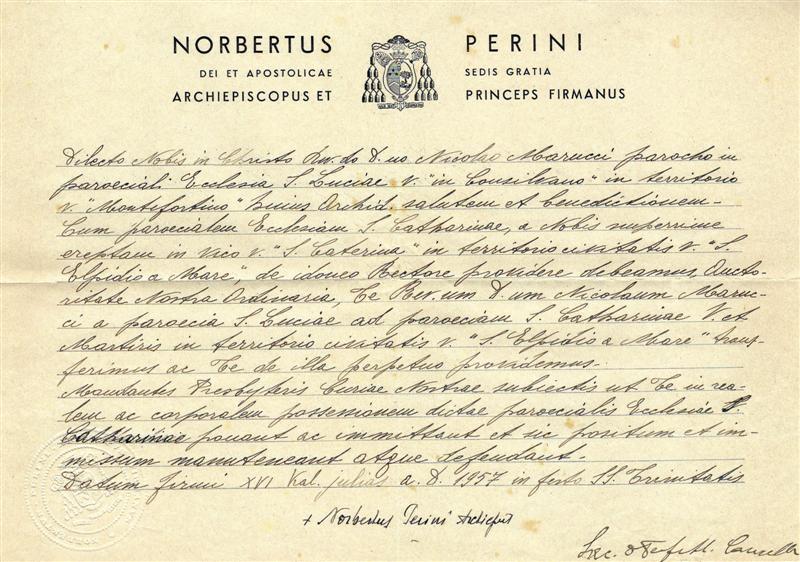 NORBERTUS PERINI
DEI ET APOSTOLICAE SEDIS GRATIA
ARCHIEPISCOPUS ET PRINCEPS FIRMANUS
Dilecto Nobis in Christo Rev.do D.no Nicolao Marucci parocho in
paroeciali Ecclesia S. Luciae v. "in Consilvano" in territorio
v. "Montefortino" huius Archid. salutem et benedictionem-
Cum paroecialem Ecclesiam S. Catharinae, a Nobis nuperrime
erectam in vico v. "S. Caterina" in territorio civitatis v. "S.
Elpidio a Mare", de idoneo Rectore providere debeamus, Aucto-
ritate Nostra Ordinaria, Te Rev.um D.um Nicolaum Maruc-
ci a paroecia S. Luciae ad paroeciam S. Catharinae V. et
Martiris in territorio civitatis v. "S. Elpidio a Mare" trans-
ferimus ac Te de illa perpetuo providemus.-
Mandantes Presbyteris Curiae Nostrae subiectis ut Te in rea-
lem ac corporalem possessionem dictae paroecialis Ecclesiae S.
Catharinae ponant ac immittant et sic positum et im-
missum manuteneant atque defendant.-
Datum Firmi XVI Kal. julias a. D. 1957 in festo SS. Trinitatis
+ Norbertus Perini
Sac.